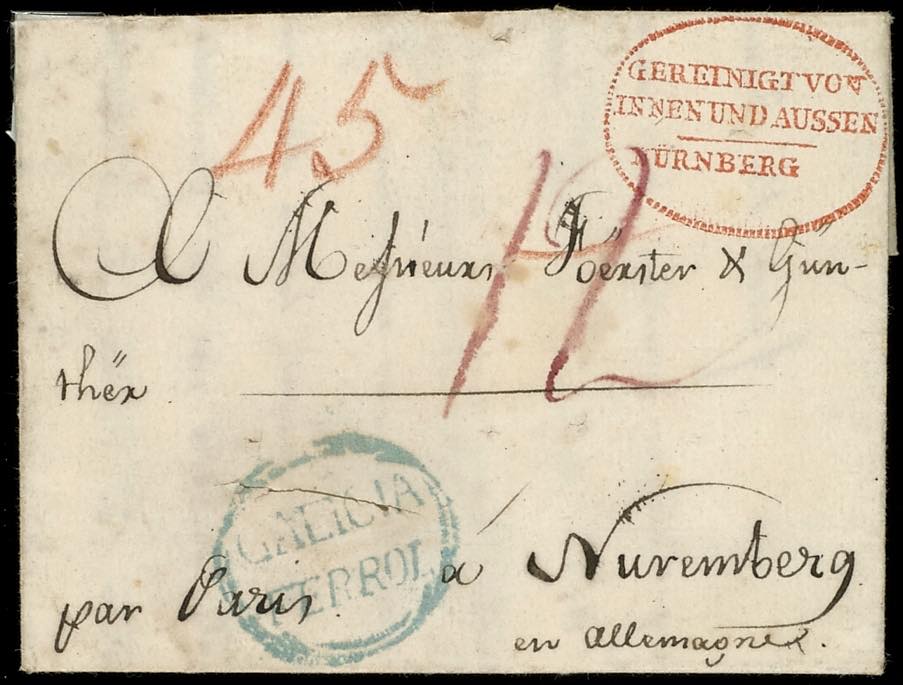 45
GEREINIGT VON
INNEN UND AUSSEN
NÜRNBERG
12
A Messieurs Foerster & Gün-
thër
GALICIA
FERROL
à Nuremberg
par Paris.
en allemagne.